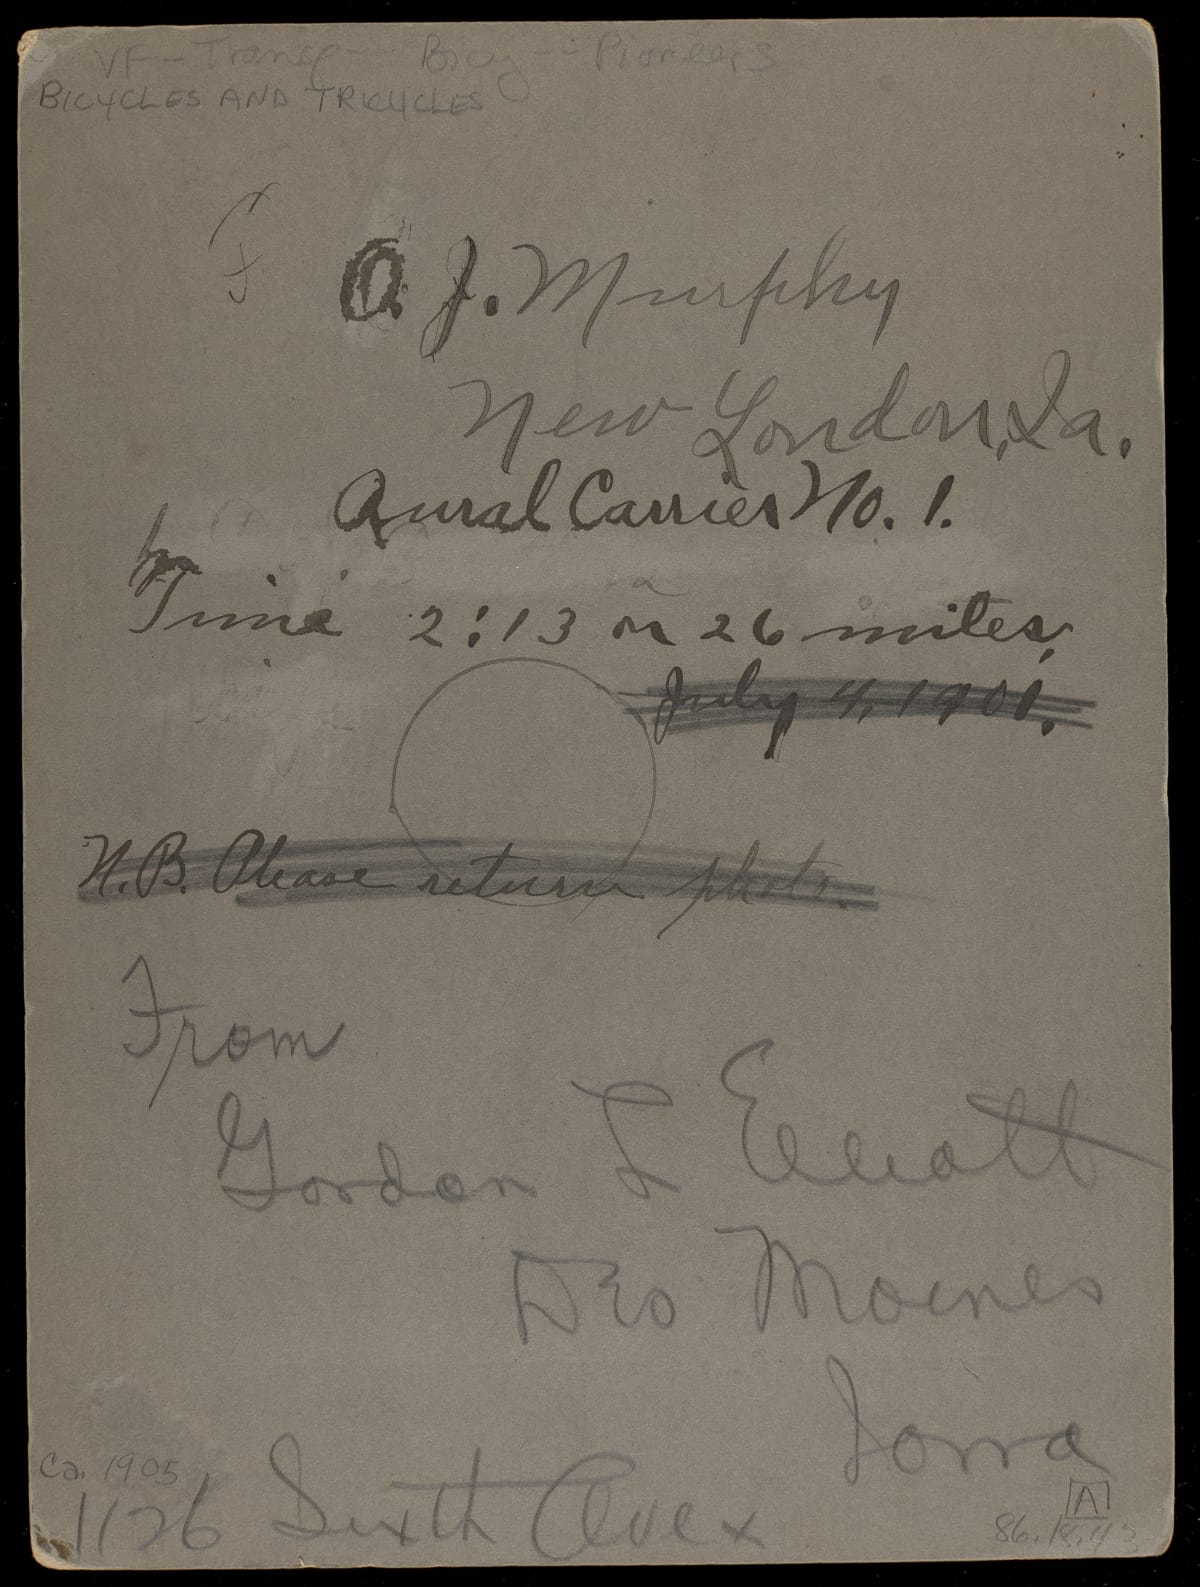 VF - Transp - Bicy - Pioneers
BICYCLES AND TRICYCLES
O. J. Murphy
New London, Ia.
Rural Carrier No. 1.
Time 2:13 on 26 miles,
July 4, 1901.
N.B. Please return photo.
From
Gordon L Elliott
Des Moines
Iowa
Ca. 1905
1126 Sixth Ave
A
86.18.43